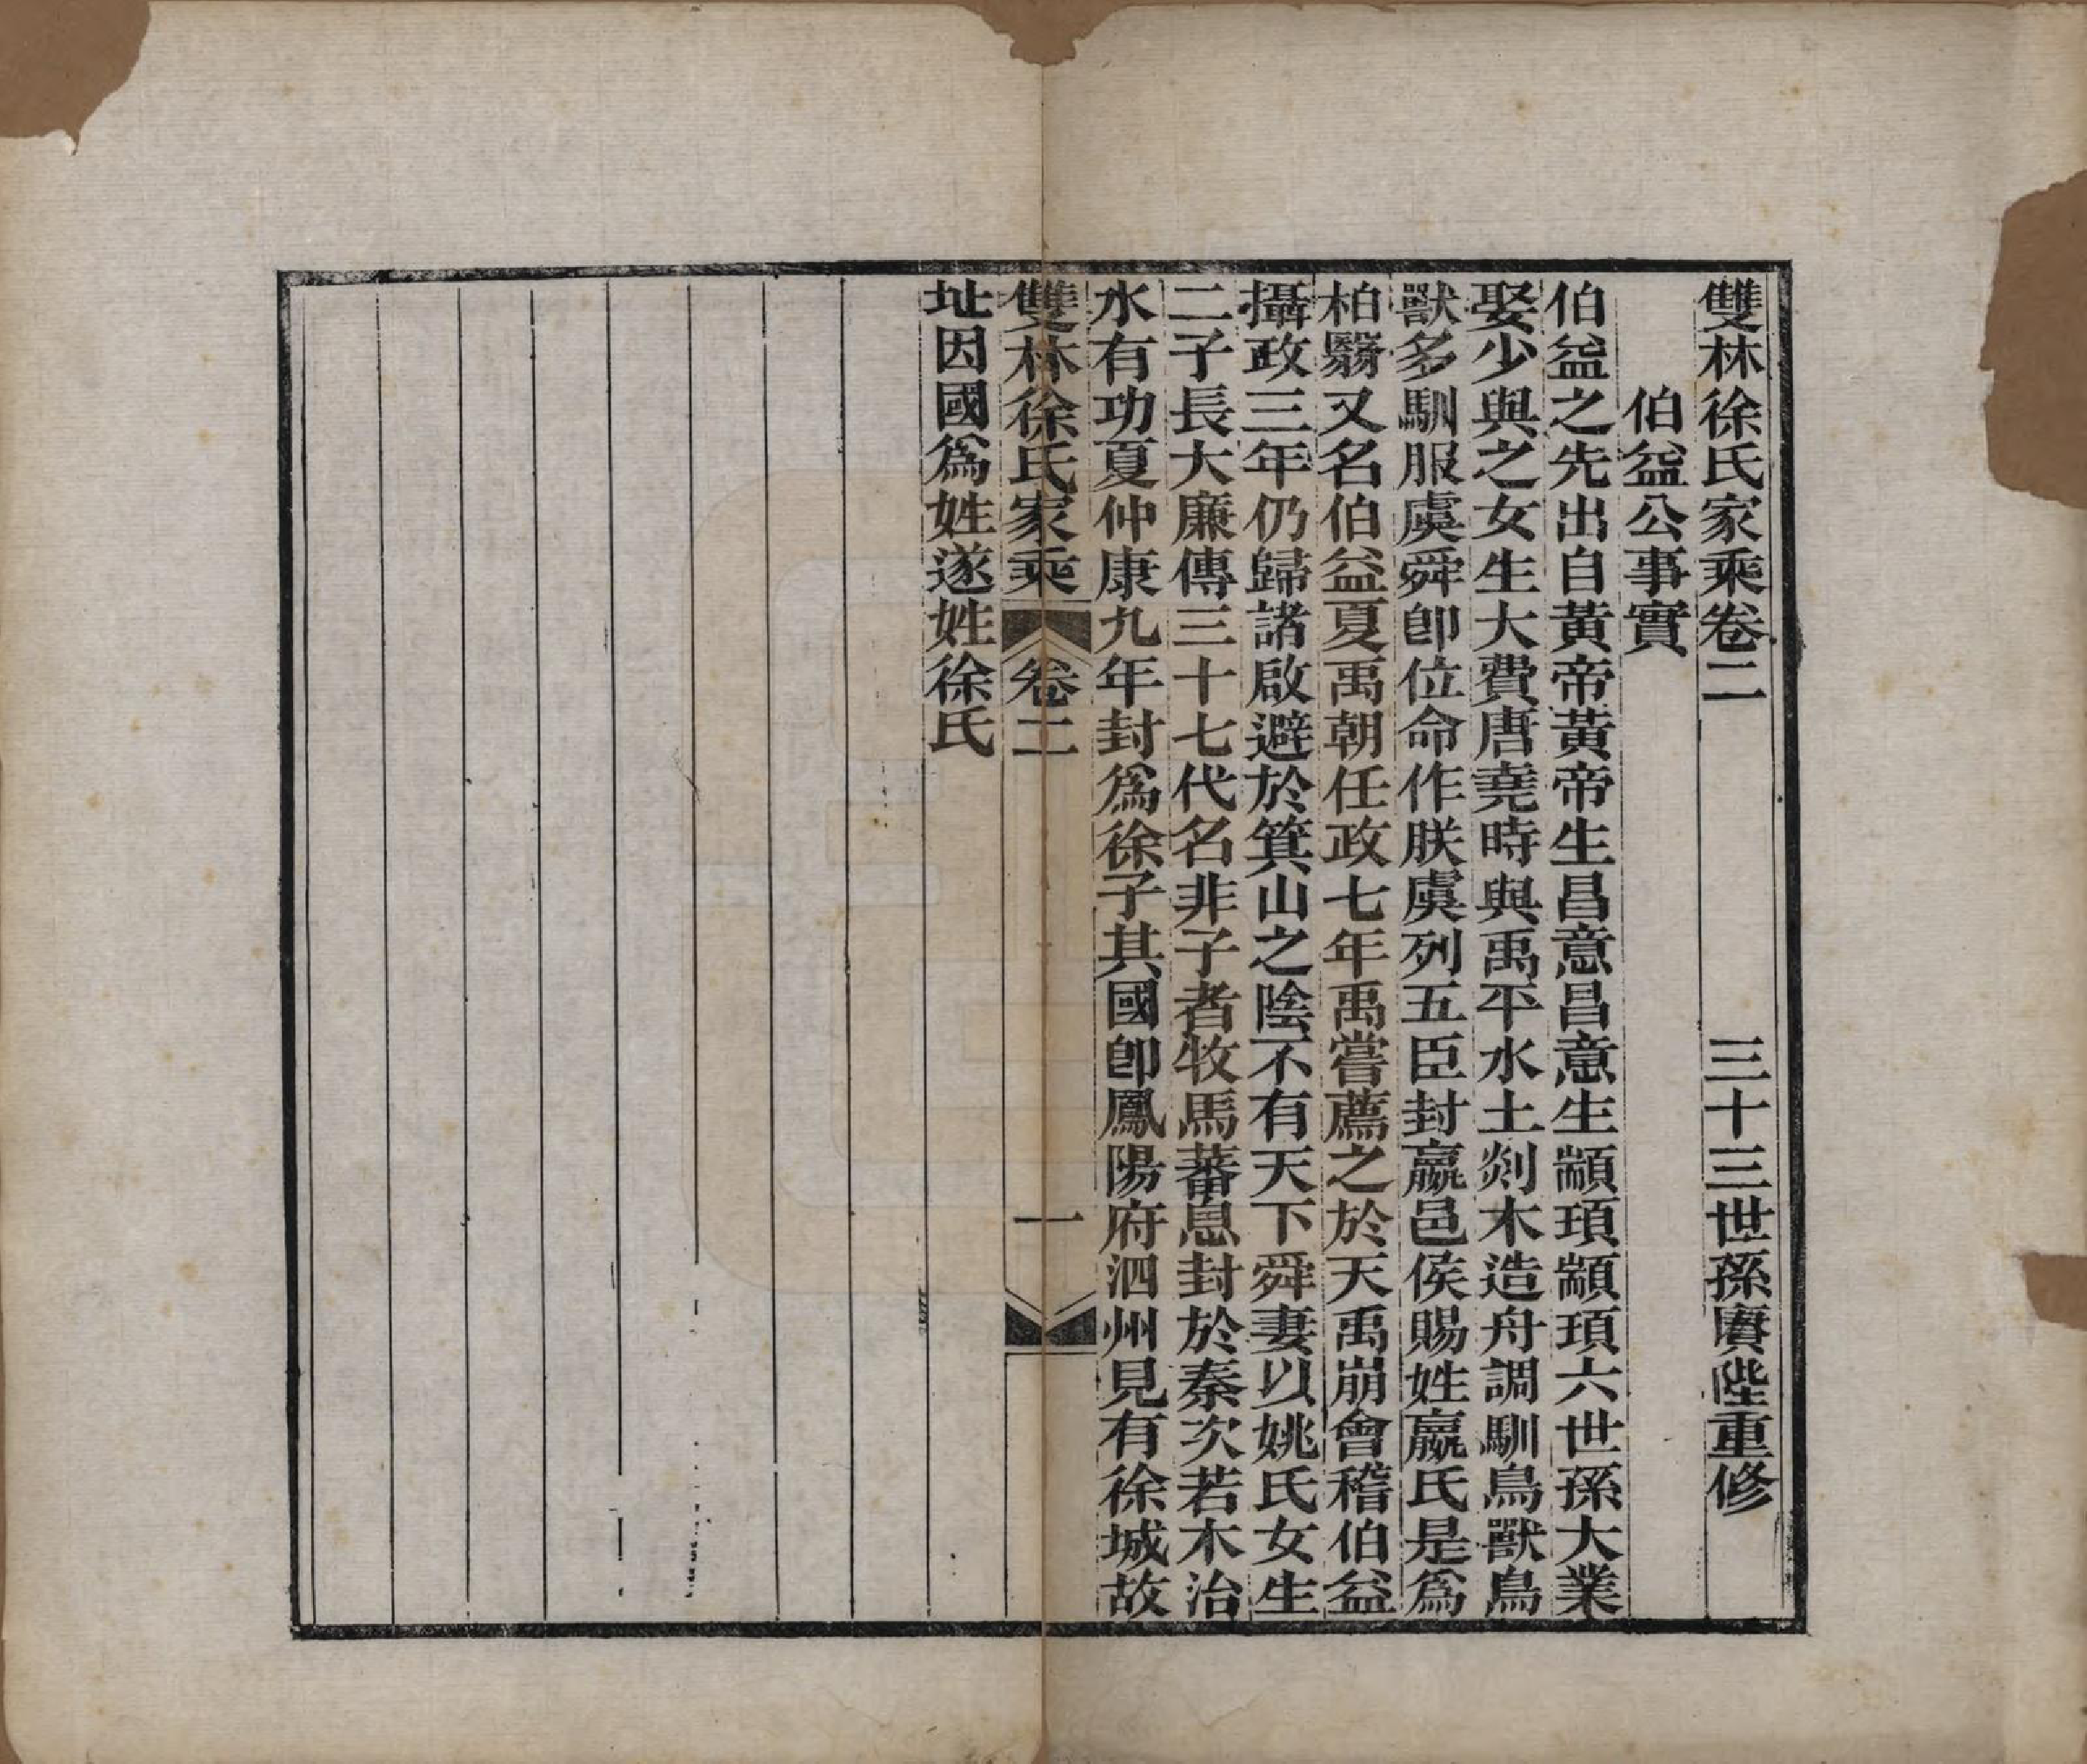 雙林徐氏家乘卷二　三十三世孫賡陛重修
伯益公事實
伯益之先出自黃帝黃帝生昌意昌意生顓頊顓頊六世孫大業
娶少與之女生大費唐堯時與禹平水土剡木造舟調馴鳥獸鳥
獸多馴服虞舜卽位命作朕虞列五臣封嬴邑侯賜姓嬴氏是爲
柏翳又名伯益夏禹朝任政七年禹嘗薦之於天禹崩會稽伯益
攝政三年仍歸諸啟避於箕山之陰不有天下舜妻以姚氏女生
二子長大廉傳三十七代名非子者牧馬蕃息封於秦次若木治
水有功夏仲康九年封爲徐子其國卽鳳陽府泗州見有徐城故
雙林徐氏家乘　卷二　一
址因國爲姓遂姓徐氏